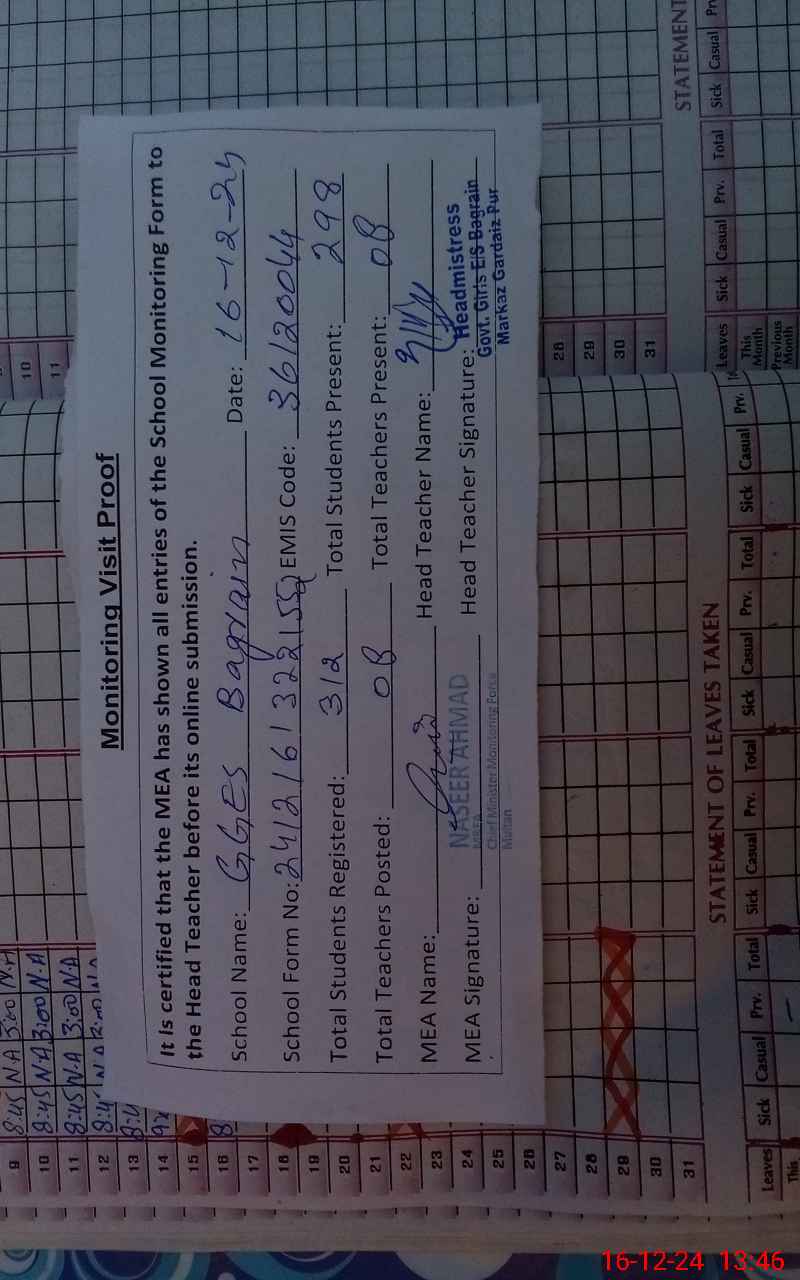 Monitoring Visit Proof
It Is certified that the MEA has shown all entries of the School Monitoring Form to
the Head Teacher before its online submission.
School Name: GGES Bagrain Date: 16-12-24
School Form No: EMIS Code: 36120044
Total Students Registered: 312 Total Students Present: 298
Total Teachers Posted: 08 Total Teachers Present: 08
MEA Name: Head Teacher Name:
MEA Signature: Head Teacher Signature:
NASEER AHMAD
MEA
Chief Minister Monitoring Force
Multan
Headmistress
Govt. Girls E/S Bagrain
Markaz Gardaiz Pur
9 8:45 N.A 3:00 N.A
10 8:45 N.A 3:00 N.A
11 8:45 N.A 3:00 N.A
12
13
14
15
16
17
18
19
20
21
22
23
24
25
26
27
28
29
30
31
STATEMENT OF LEAVES TAKEN
Leaves Sick Casual Prv. Total Sick Casual Prv. Total Sick Casual Prv. Total Sick Casual Prv.
This
10
11
28
29
30
31
STATEMENT
Leaves Sick Casual Prv. Total Sick Casual
This Month
Previous Month
16-12-24 13:46